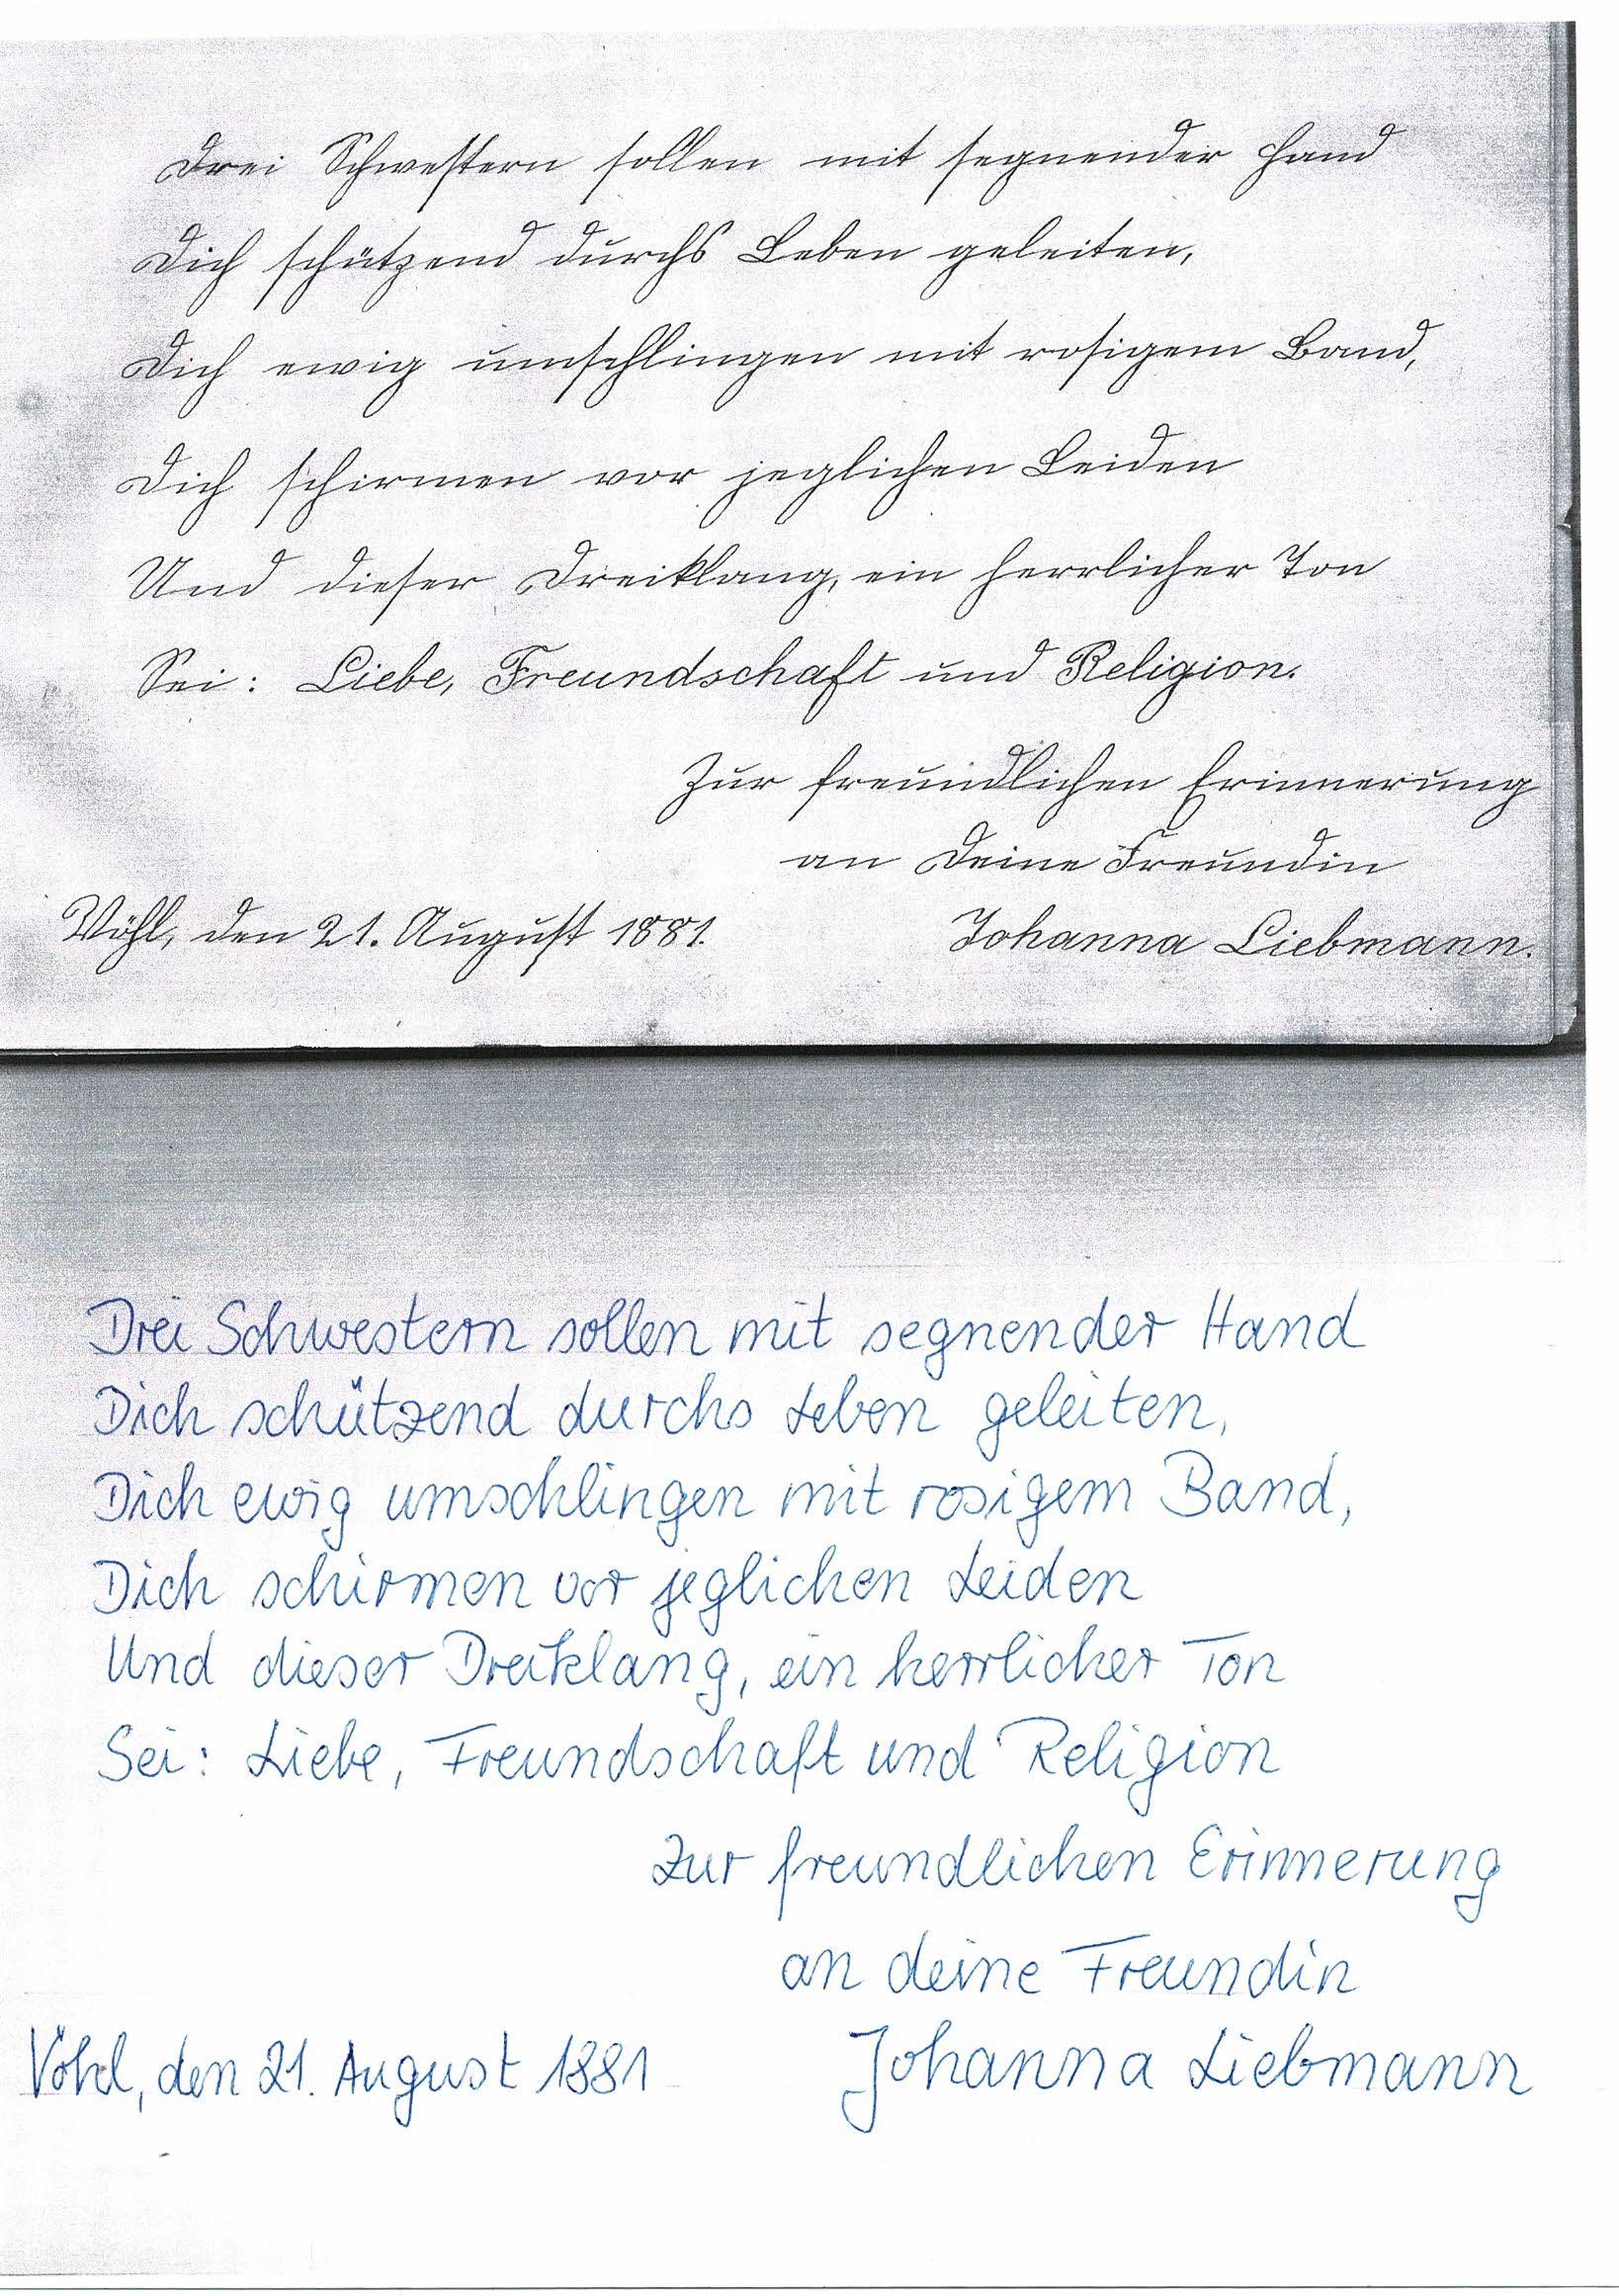 Drei Schwestern sollen mit segnender Hand
Dich schützend durchs Leben geleiten,
Dich ewig umschlingen mit rosigem Band,
Dich schirmen vor jeglichen Leiden
Und dieser Dreiklang, ein herrlicher Ton
Sei: Liebe, Freundschaft und Religion.
Zur freundlichen Erinnerung
an Deine Freundin
Vöhl, den 21. August 1881. Johanna Liebmann.
Drei Schwestern sollen mit segnender Hand
Dich schützend durchs Leben geleiten,
Dich ewig umschlingen mit rosigem Band,
Dich schirmen vor jeglichen Leiden
Und dieser Dreiklang, ein herrlicher Ton
Sei: Liebe, Freundschaft und Religion
Zur freundlichen Erinnerung
an deine Freundin
Vöhl, den 21. August 1881 Johanna Liebmann